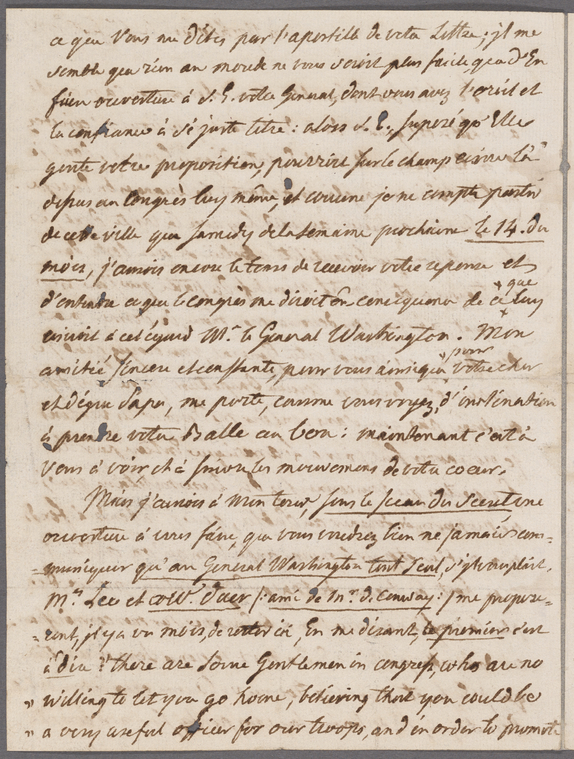 ce que vous me dites par l'apostille de votre Lettre; il me
semble que rien au monde ne vous seroit plus facile que d'En
faire ouverture à S. E. votre General, dont vous avez l'oreil et
la confiance à si juste titre: alors S. E., supposé qu'Elle
goute votre proposition, pourroit sur le champ ecrire là
depus au Congrès luy même, et comme je ne compte partir
de cette ville que samedy de la semaine prochaine le 14. du
mois, j'aurois encore le tems de recevoir votre reponse et
d'entendre ce que le Congrès me diroit En consequence de ce que luy
ecriroit à cet égard Mr. le General Washington. Mon
amitié sincere et constante, pour vous ainsi que pour votre cher
et digne Papa, me porte, comme vous voyez, d'inclination
à prendre votre Balle au bon: maintenant c'est à
vous à voir et à suivre les mouvemens de votre coeur.
Mais j'aurois à mon tour, sous le sceau du secret une
ouverture à vous faire, que vous voudrez bien ne jamais com=
=muniquer qu'au General Washington tout seul, s'il vous plait.
Mrs. Lee et Duer /: ami de Mr. de Conway :/ me propose=
=rent, il y a un mois, de rester ici, En me disant, le premier c'est
à dire: there are some Gentlemen in congress, who are no
" willing to let you go home, believing that you could be
" a very useful officer for our troops, and in order to promote